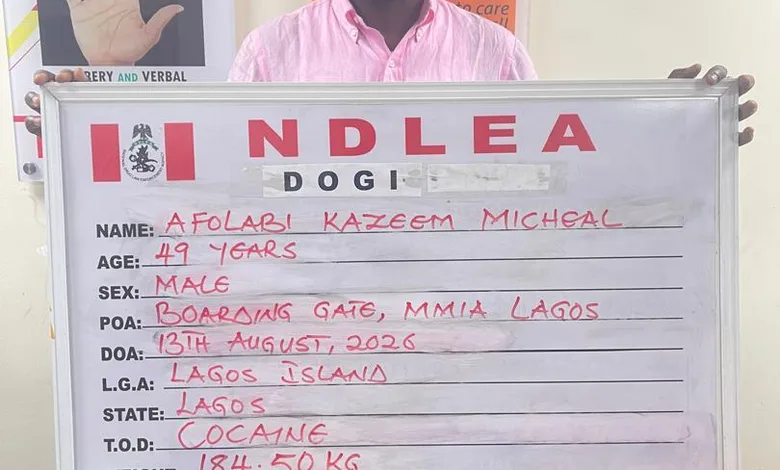 to care
BERY AND VERBAL
NDLEA
DOGI
NAME: AFOLABI KAZEEM MICHEAL
AGE: 49 YEARS
SEX: MALE
POA: BOARDING GATE, MMIA LAGOS
DOA: 13TH AUGUST, 2026
L.G.A: LAGOS ISLAND
STATE: LAGOS
T.O.D: COCAINE
184.50 KG